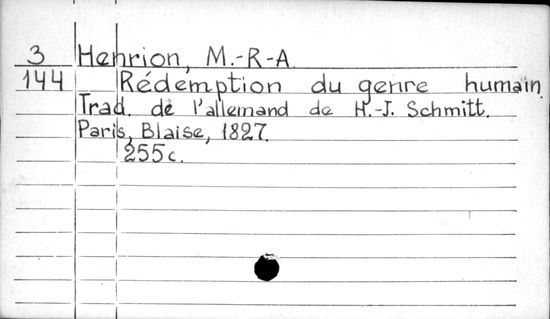 3 Henrion, M.-R-A.
144 Rédemption du genre humain.
Trad. de l'allemand de H.-J. Schmitt.
Paris, Blaise, 1827.
255c.